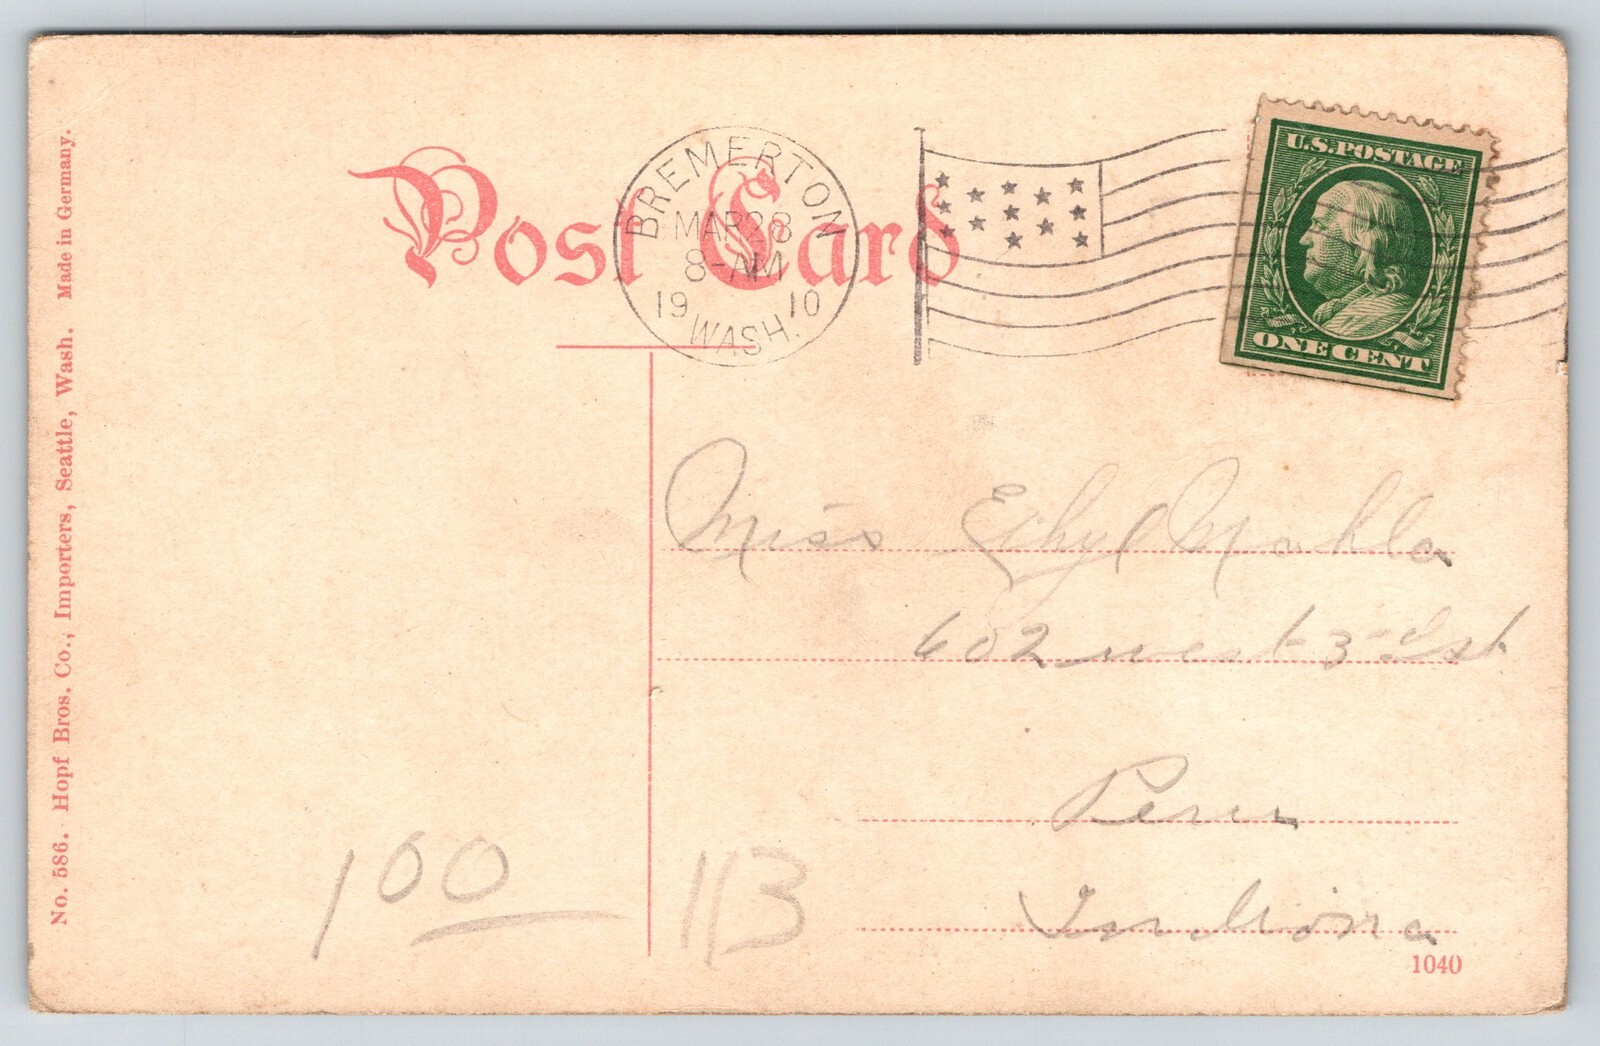 No. 586. Hopf Bros. Co., Importers, Seattle, Wash. Made in Germany.
Post Card
BREMERTON
MAR 28
8-AM
19 10
WASH.
U.S. POSTAGE
ONE CENT
Miss Ethyl Mahla
602 west 3rd st
Peru
Indiana
1 00
113
1040